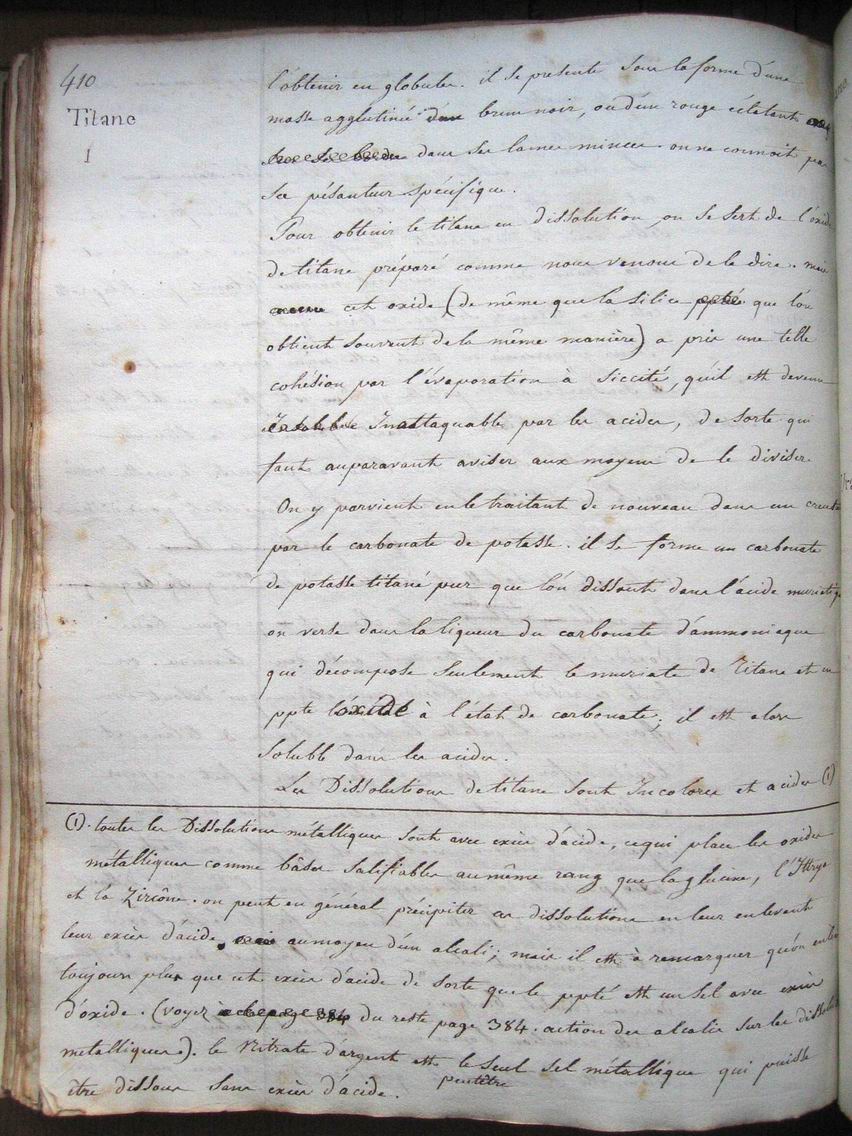 410
Titane
1
l'obtenir en globules. il se presente sous la forme d'une
masse agglutinée d'un brun noir, ou d'un rouge éclatant
dans ses lames minces on ne connoit pas
sa pésanteur spécifique.
Pour obtenir le titane en dissolution, on se sert de l'oxide
de titane préparé comme nous venons de le dire. mais
cet oxide (de même que la silice que l'on
obtient souvent de la même manière) a pris une telle
cohésion par l'évaporation à siccité, qu'il est devenu
Inattaquable par les acides, de sorte qui
faut auparavant aviser aux moyens de le diviser
On y parvient en le traitant de nouveau dans un creuset
par le carbonate de potasse. il se forme un carbonate
de potasse titané pur que l'on dissout dans l'acide muriatique
on verse dans la liqueur du carbonate d'ammoniaque
qui décompose seulement le muriate de Titane et en
ppte l'oxide à l'état de carbonate; il est alors
soluble dans les acides.
Les Dissolutions de titane sont Incolores et acides (1)
(1). toutes les Dissolutions métalliques sont avec excès d'acide, ce qui place les oxides
métalliques comme bâses salifiables au même rang que la glucine, l'Ittrya
et la Zircône. on peut en général précipiter ces dissolutions en leur enlevant
leur excès d'acide, au moyen d'un alcali; mais il est à remarquer qu'on enlève
toujours plus que cet excès d'acide de sorte que le ppté est un sel avec excès
d'oxide. (voyez du reste page 384. action des alcalis sur les dissolutions
metalliques). le Nitrate d'argent est le seul sel métallique qui puisse
peutêtre
être dissous sans excès d'acide.